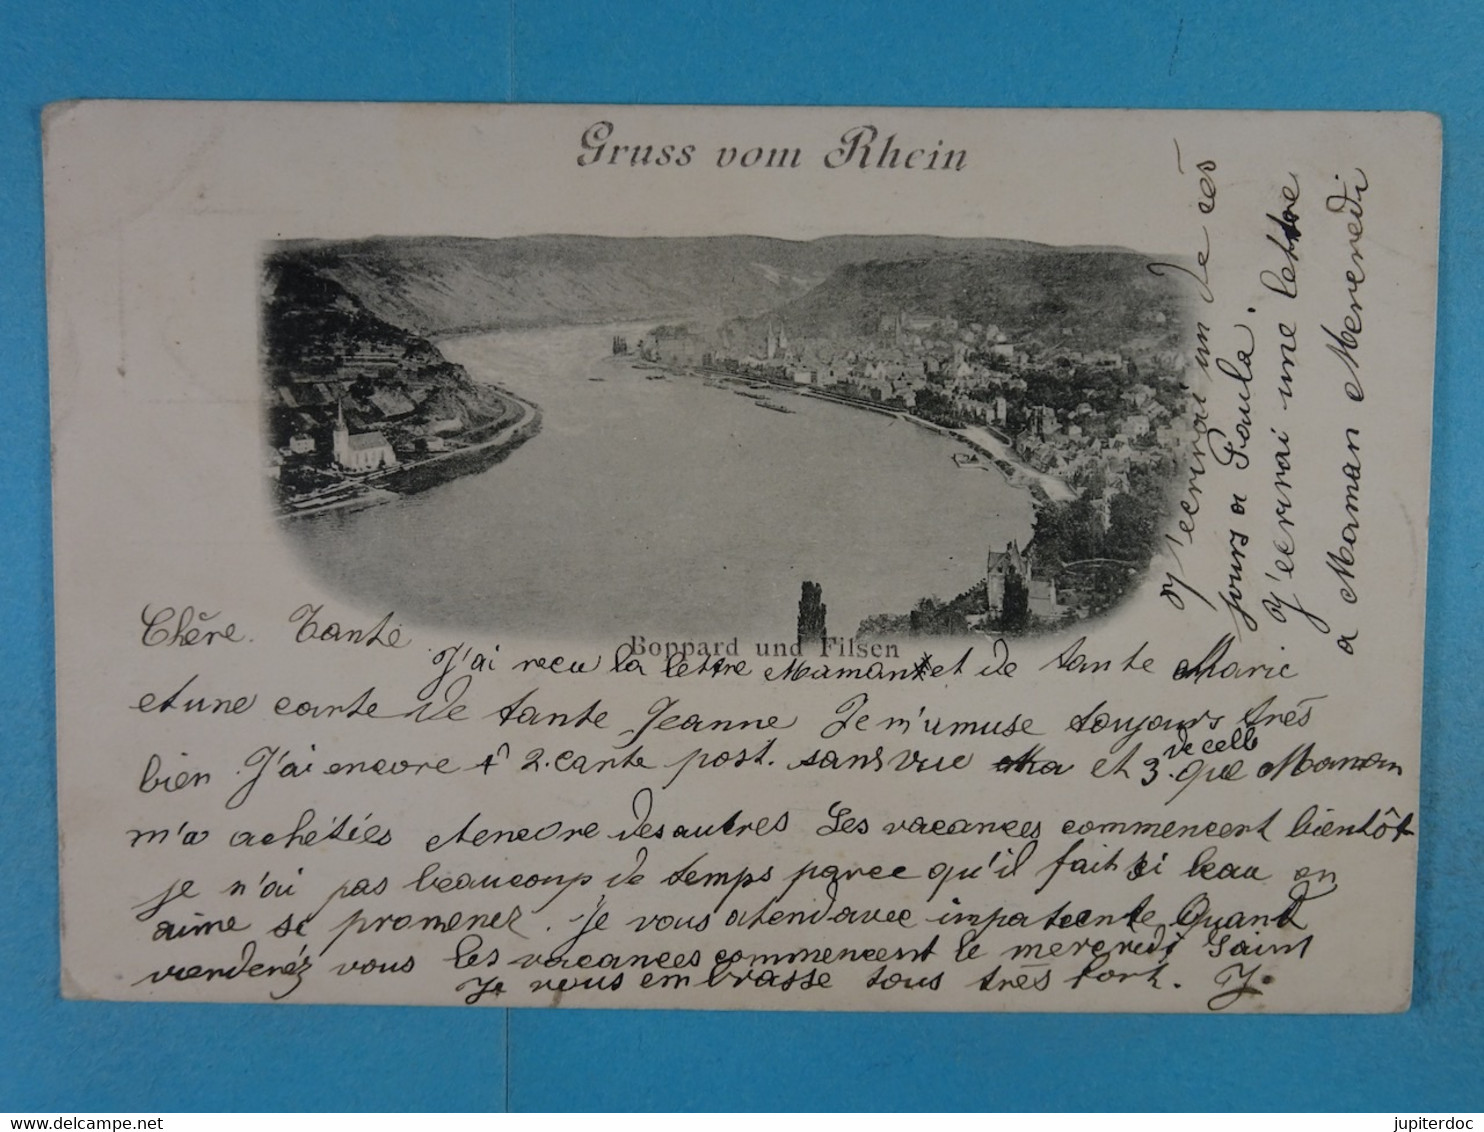 Gruss vom Rhein
Boppard und Filsen
Chère. Tante
J'ai recu la lettre Maman et de tante Marie
et une carte de tante Jeanne Je m'amuse toujours très
bien J'ai encore 2. carte post. sans vue et 3. de celle que Maman
m'a achétées et encore des autres Les vacances commencent bientôt
je n'ai pas beaucoup de temps parce qu'il fait si beau on
aime se promener. Je vous atend avec impatcente Quand
viendenéz vous les vacances commencent le mercredi Saint
Je vous embrasse tous très fort. J.
J'ecrirai un de cés
jours a Paula.
J'ecrirai une lettre
a Maman Mercredi
jupiterdoc
www.delcampe.net